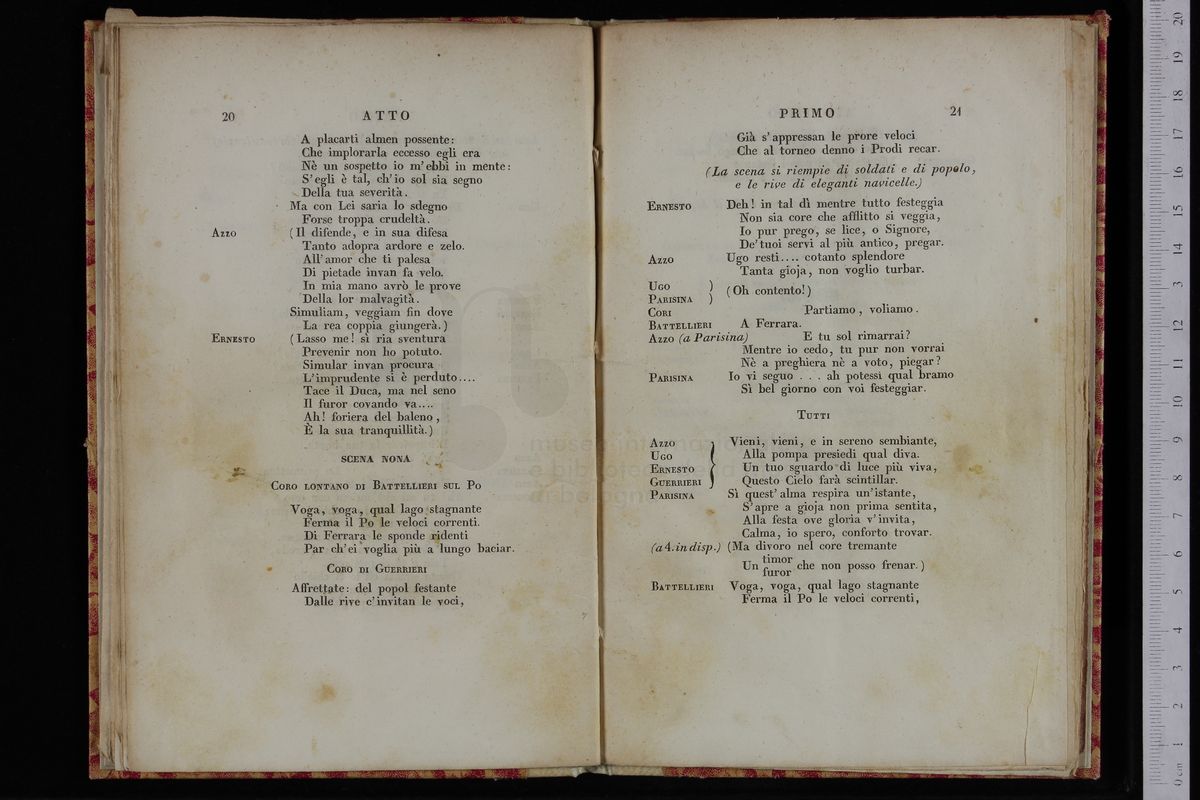 20 ATTO
A placarti almen possente:
Che implorarla eccesso egli era
Nè un sospetto io m'ebbi in mente:
S'egli è tal, ch'io sol sia segno
Della tua severità.
Ma con Lei saria lo sdegno
Forse troppa crudeltà.
Azzo (Il difende, e in sua difesa
Tanto adopra ardore e zelo.
All'amor che ti palesa
Di pietade invan fa velo.
In mia mano avrò le prove
Della lor malvagità.
Simuliam, veggiam fin dove
La rea coppia giungerà.)
Ernesto (Lasso me! sì ria sventura
Prevenir non ho potuto.
Simular invan procura
L'imprudente si è perduto....
Tace il Duca, ma nel seno
Il furor covando va....
Ah! foriera del baleno,
È la sua tranquillità.)
SCENA NONA
Coro lontano di Battellieri sul Po
Voga, voga, qual lago stagnante
Ferma il Po le veloci correnti.
Di Ferrara le sponde ridenti
Par ch'ei voglia più a lungo baciar.
Coro di Guerrieri
Affrettate: del popol festante
Dalle rive c'invitan le voci,
PRIMO 21
Già s'appressan le prore veloci
Che al torneo denno i Prodi recar.
(La scena si riempie di soldati e di popolo,
e le rive di eleganti navicelle.)
Ernesto Deh! in tal dì mentre tutto festeggia
Non sia core che afflitto si veggia,
Io pur prego, se lice, o Signore,
De'tuoi servi al più antico, pregar.
Azzo Ugo resti.... cotanto splendore
Tanta gioja, non voglio turbar.
Ugo
Parisina } (Oh contento!)
Cori Partiamo, voliamo.
Battellieri A Ferrara.
Azzo (a Parisina) E tu sol rimarrai?
Mentre io cedo, tu pur non vorrai
Nè a preghiera nè a voto, piegar?
Parisina Io vi seguo . . . ah potessi qual bramo
Sì bel giorno con voi festeggiar.
Tutti
Azzo Vieni, vieni, e in sereno sembiante,
Ugo Alla pompa presiedi qual diva.
Ernesto Un tuo sguardo di luce più viva,
Guerrieri Questo Cielo farà scintillar.
Parisina Sì quest'alma respira un'istante,
S'apre a gioja non prima sentita,
Alla festa ove gloria v'invita,
Calma, io spero, conforto trovar.
(a 4. in disp.) (Ma divoro nel core tremante
Un timor furor che non posso frenar.)
Battellieri Voga, voga, qual lago stagnante
Ferma il Po le veloci correnti,